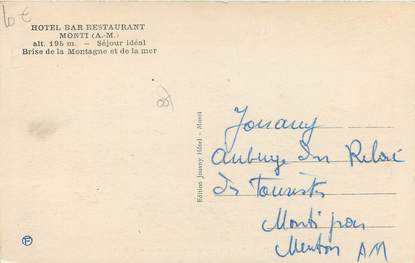 10 €
HOTEL BAR RESTAURANT
MONTI (A.-M.)
alt. 195 m. — Séjour idéal
Brise de la Montagne et de la mer
Edition Jouany Hôtel - Monti
Jouany
Auberge du Relai
des Touristes
Monti par
Menton AM